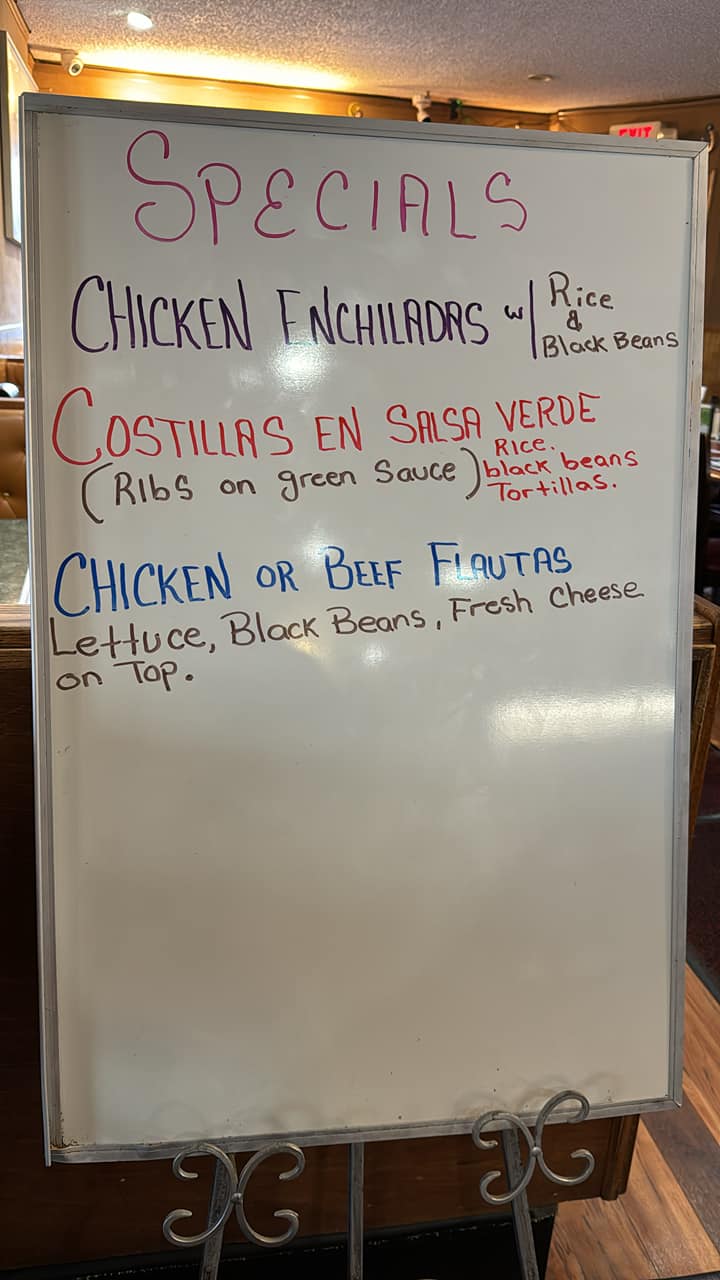 EXIT
SPECIALS
CHICKEN ENCHILADAS w/ Rice
&
Black Beans
COSTILLAS EN SALSA VERDE
(Ribs on green Sauce) Rice.
black beans
Tortillas.
CHICKEN OR BEEF FLAUTAS
Lettuce, Black Beans, Fresh Cheese
on Top.